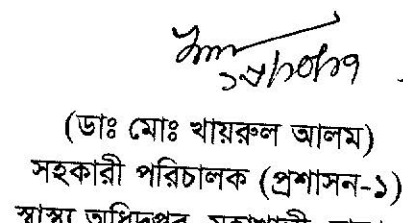 (ডাঃ মোঃ খায়রুল আলম)
সহকারী পরিচালক (প্রশাসন-১)
স্বাস্থ্য অধিদপ্তর, মহাখালী, ঢাকা